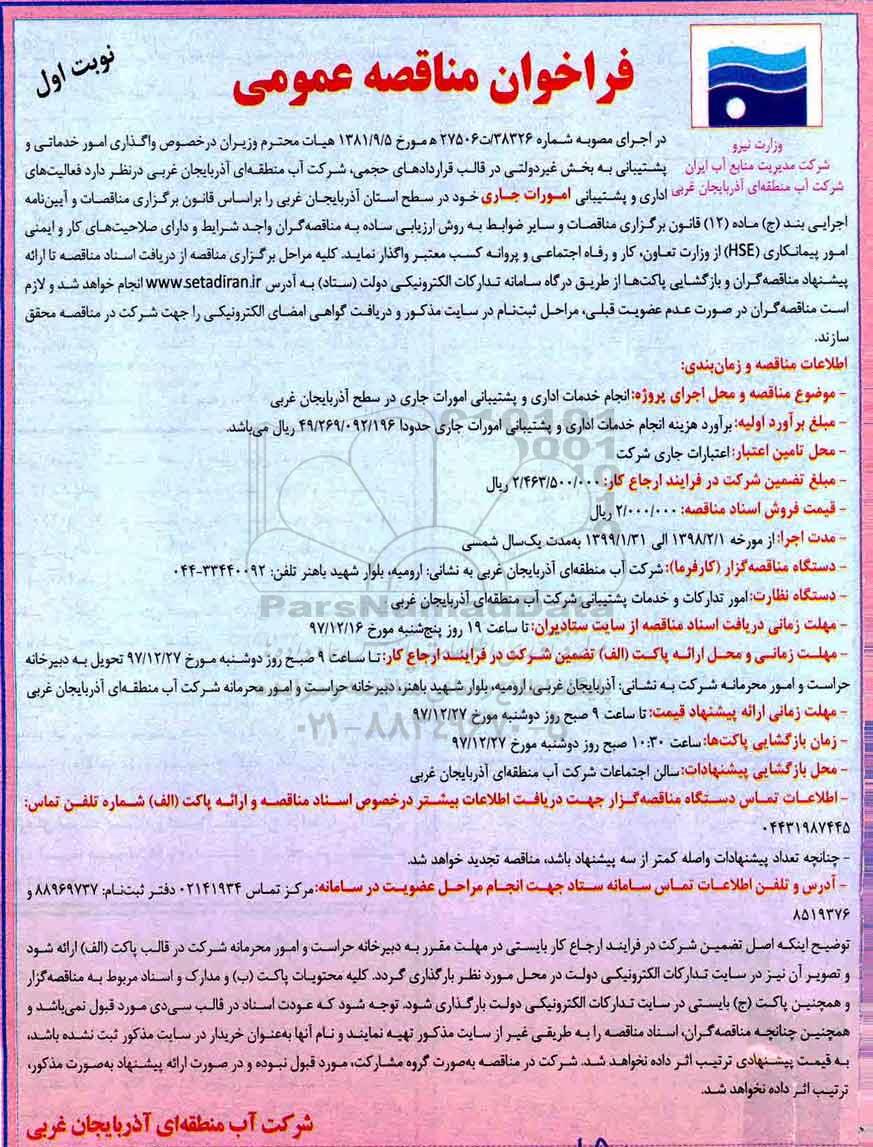 نوبت اول
فراخوان مناقصه عمومی
وزارت نیرو
شرکت مدیریت منابع آب ایران
شرکت آب منطقه‌ای آذربایجان غربی
در اجرای مصوبه شماره ۳۸۳۲۶/ت۲۷۵۰۶ ه مورخ ۱۳۸۱/۹/۵ هیات محترم وزیران درخصوص واگذاری امور خدماتی و
پشتیبانی به بخش غیردولتی در قالب قراردادهای حجمی، شرکت آب منطقه‌ای آذربایجان غربی درنظر دارد فعالیت‌های
اداری و پشتیبانی امورات جاری خود در سطح استان آذربایجان غربی را براساس قانون برگزاری مناقصات و آیین‌نامه
اجرایی بند (ج) ماده (۱۲) قانون برگزاری مناقصات و سایر ضوابط به روش ارزیابی ساده به مناقصه‌گران واجد شرایط و دارای صلاحیت‌های کار و ایمنی
امور پیمانکاری (HSE) از وزارت تعاون، کار و رفاه اجتماعی و پروانه کسب معتبر واگذار نماید. کلیه مراحل برگزاری مناقصه از دریافت اسناد مناقصه تا ارائه
پیشنهاد مناقصه‌گران و بازگشایی پاکت‌ها از طریق درگاه سامانه تدارکات الکترونیکی دولت (ستاد) به آدرس www.setadiran.ir انجام خواهد شد و لازم
است مناقصه‌گران در صورت عدم عضویت قبلی، مراحل ثبت‌نام در سایت مذکور و دریافت گواهی امضای الکترونیکی را جهت شرکت در مناقصه محقق
سازند.
اطلاعات مناقصه و زمان‌بندی:
- موضوع مناقصه و محل اجرای پروژه: انجام خدمات اداری و پشتیبانی امورات جاری در سطح آذربایجان غربی
- مبلغ برآورد اولیه: برآورد هزینه انجام خدمات اداری و پشتیبانی امورات جاری حدودا ۴۹/۲۶۹/۰۹۲/۱۹۶ ریال می‌باشد.
- محل تامین اعتبار: اعتبارات جاری شرکت
- مبلغ تضمین شرکت در فرایند ارجاع کار: ۲/۴۶۳/۵۰۰/۰۰۰ ریال
- قیمت فروش اسناد مناقصه: ۲/۰۰۰/۰۰۰ ریال
- مدت اجرا: از مورخه ۱۳۹۸/۲/۱ الی ۱۳۹۹/۱/۳۱ به‌مدت یک‌سال شمسی
- دستگاه مناقصه‌گزار (کارفرما): شرکت آب منطقه‌ای آذربایجان غربی به نشانی: ارومیه، بلوار شهید باهنر تلفن: ۳۳۴۴۰۰۹۲-۰۴۴
- دستگاه نظارت: امور تدارکات و خدمات پشتیبانی شرکت آب منطقه‌ای آذربایجان غربی
- مهلت زمانی دریافت اسناد مناقصه از سایت ستادیران: تا ساعت ۱۹ روز پنج‌شنبه مورخ ۹۷/۱۲/۱۶
- مهلت زمانی و محل ارائه پاکت (الف) تضمین شرکت در فرایند ارجاع کار: تا ساعت ۹ صبح روز دوشنبه مورخ ۹۷/۱۲/۲۷ تحویل به دبیرخانه
حراست و امور محرمانه شرکت به نشانی: آذربایجان غربی، ارومیه، بلوار شهید باهنر، دبیرخانه حراست و امور محرمانه شرکت آب منطقه‌ای آذربایجان غربی
- مهلت زمانی ارائه پیشنهاد قیمت: تا ساعت ۹ صبح روز دوشنبه مورخ ۹۷/۱۲/۲۷
- زمان بازگشایی پاکت‌ها: ساعت ۱۰:۳۰ صبح روز دوشنبه مورخ ۹۷/۱۲/۲۷
- محل بازگشایی پیشنهادات: سالن اجتماعات شرکت آب منطقه‌ای آذربایجان غربی
- اطلاعات تماس دستگاه مناقصه‌گزار جهت دریافت اطلاعات بیشتر درخصوص اسناد مناقصه و ارائه پاکت (الف) شماره تلفن تماس:
۰۴۴۳۱۹۸۷۴۴۵
- چنانچه تعداد پیشنهادات واصله کمتر از سه پیشنهاد باشد، مناقصه تجدید خواهد شد.
- آدرس و تلفن اطلاعات تماس سامانه ستاد جهت انجام مراحل عضویت در سامانه: مرکز تماس ۰۲۱۴۱۹۳۴ دفتر ثبت‌نام: ۸۸۹۶۹۷۳۷ و
۸۵۱۹۳۷۶
توضیح اینکه اصل تضمین شرکت در فرایند ارجاع کار بایستی در مهلت مقرر به دبیرخانه حراست و امور محرمانه شرکت در قالب پاکت (الف) ارائه شود
و تصویر آن نیز در سایت تدارکات الکترونیکی دولت در محل مورد نظر بارگذاری گردد. کلیه محتویات پاکت (ب) و مدارک و اسناد مربوط به مناقصه‌گزار
و همچنین پاکت (ج) بایستی در سایت تدارکات الکترونیکی دولت بارگذاری شود. توجه شود که عودت اسناد در قالب سی‌دی مورد قبول نمی‌باشد و
همچنین چنانچه مناقصه‌گران، اسناد مناقصه را به طریقی غیر از سایت مذکور تهیه نمایند و نام آنها به‌عنوان خریدار در سایت مذکور ثبت نشده باشد،
به قیمت پیشنهادی ترتیب اثر داده نخواهد شد. شرکت در مناقصه به‌صورت گروه مشارکت، مورد قبول نبوده و در صورت ارائه پیشنهاد به‌صورت مذکور،
ترتیب اثر داده نخواهد شد.
شرکت آب منطقه‌ای آذربایجان غربی
ParsNamadData
۰۲۱-۸۸۳۴۹۶۷۰-۵